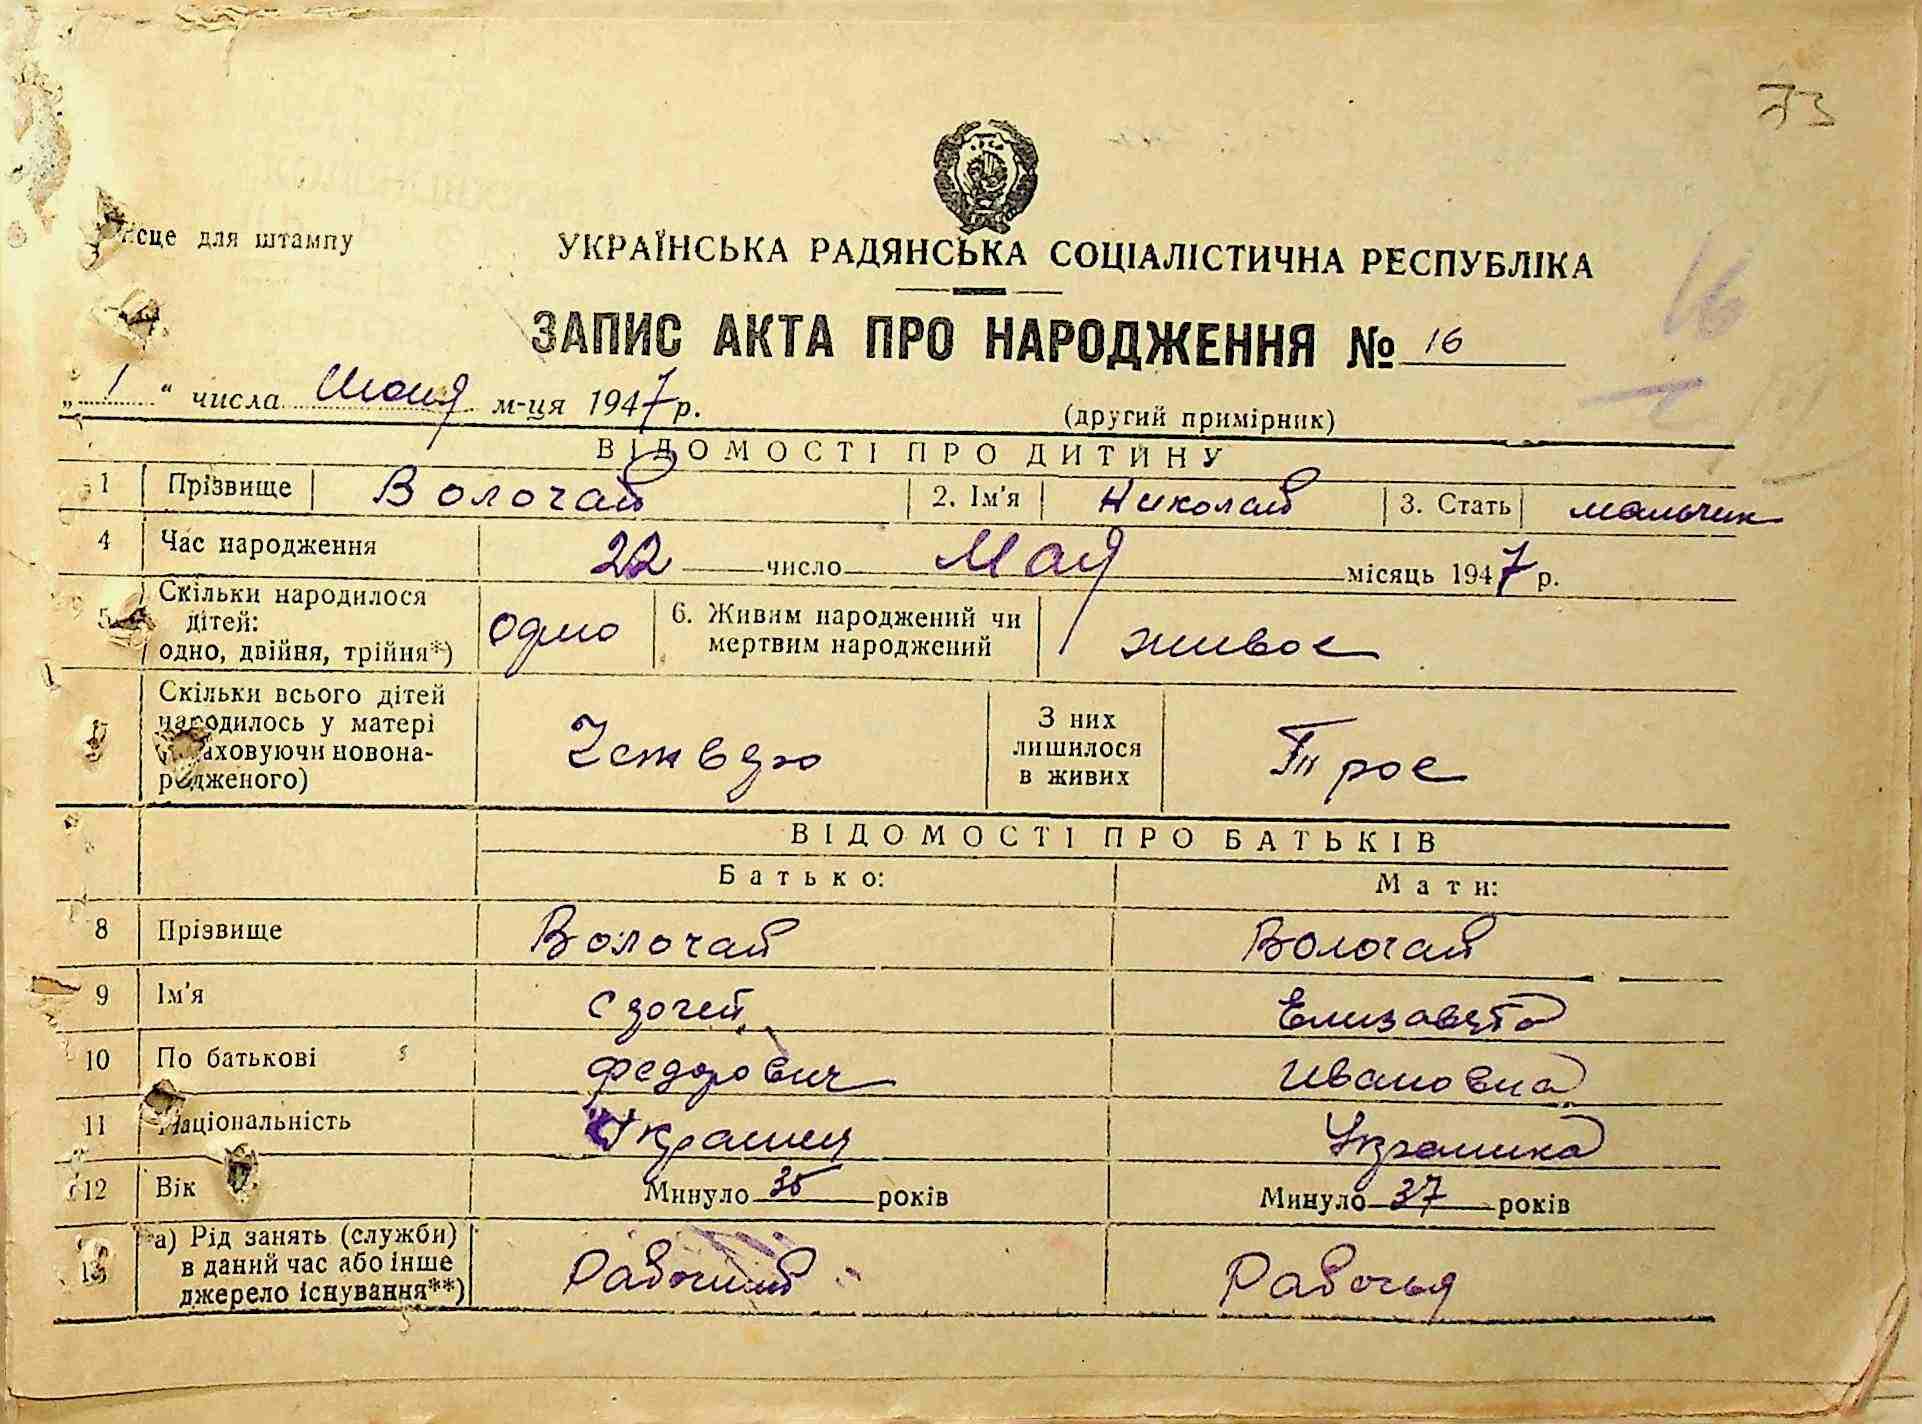 73
для штампу
УКРАЇНСЬКА РАДЯНСЬКА СОЦІАЛІСТИЧНА РЕСПУБЛІКА
16
ЗАПИС АКТА ПРО НАРОДЖЕННЯ № 16
„ 1 “ числа Июня м-ця 1947 р.
(другий примірник)
ВІДОМОСТІ ПРО ДИТИНУ
1 Прізвище Волочай 2. Ім'я Николай 3. Стать мальчик
4 Час народження 22 число Мая місяць 1947 р.
5 Скільки народилося
дітей:
одно, двійня, трійня*) одно
6. Живим народжений чи
мертвим народжений живое
Скільки всього дітей
народилось у матері
новона-
родженого) Четверо
З них
лишилося
в живих Трое
ВІДОМОСТІ ПРО БАТЬКІВ
Батько: Мати:
8 Прізвище Волочай Волочай
9 Ім'я Елизавета
10 По батькові Федорович Ивановна
11 Національність Украинец Украинка
12 Вік Минуло 35 років Минуло 37 років
13 а) Рід занять (служби)
в даний час або інше
джерело існування**) Рабочий Рабочая